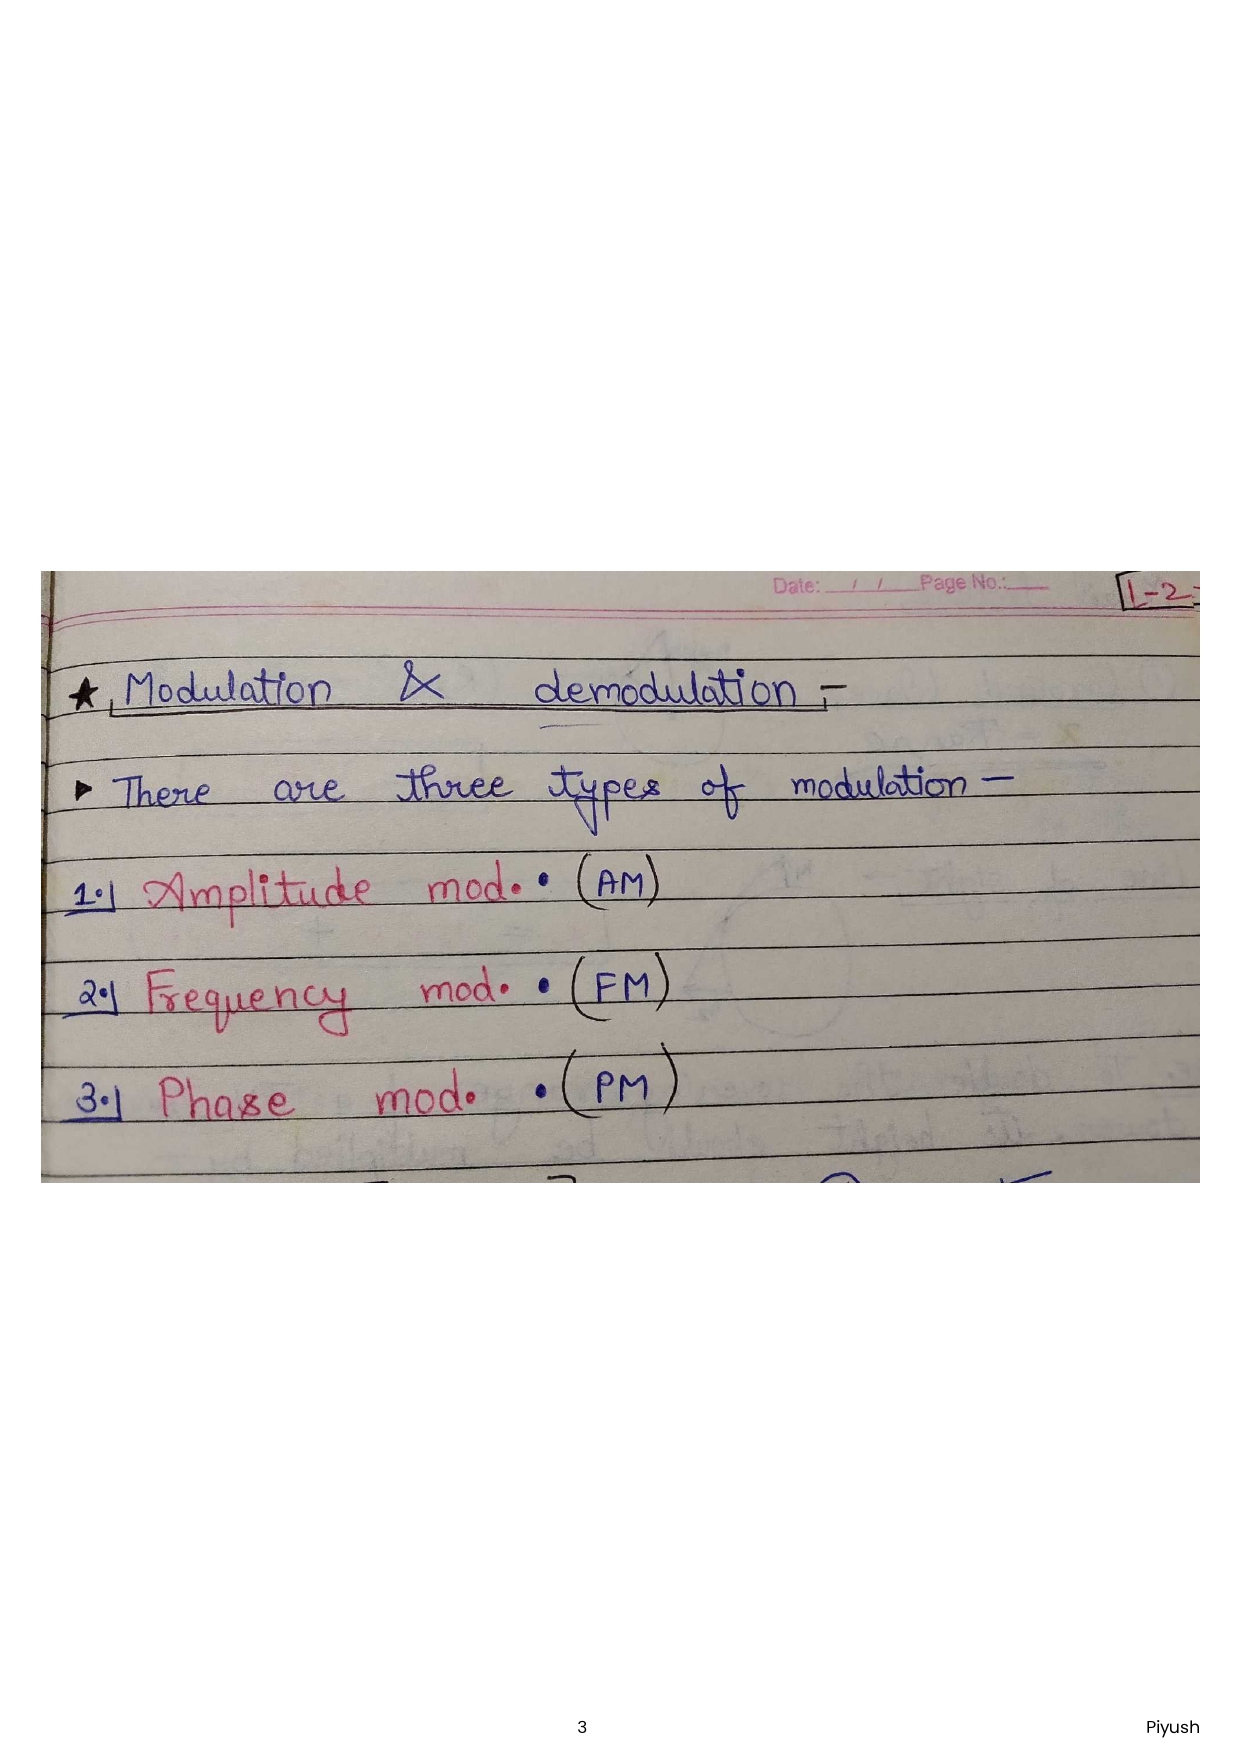 Date: / / Page No.:
L-2
★ Modulation & demodulation :-
▶ There are three types of modulation —
1. Amplitude mod. • (AM)
2. Frequency mod. • (FM)
3. Phase mod. • (PM)
3
Piyush